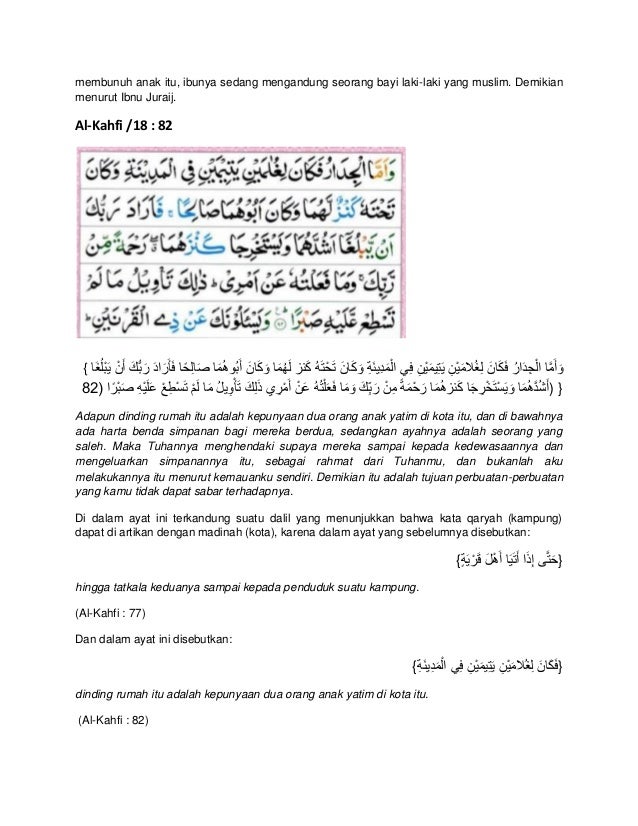 membunuh anak itu, ibunya sedang mengandung seorang bayi laki-laki yang muslim. Demikian
menurut Ibnu Juraij.
Al-Kahfi /18 : 82
وَاَمَّا الْجِدَارُ فَكَانَ لِغُلٰمَيْنِ يَتِيْمَيْنِ فِى الْمَدِيْنَةِ وَكَانَ
تَحْتَهٗ كَنْزٌ لَّهُمَا وَكَانَ اَبُوْهُمَا صَالِحًا ۚ فَاَرَادَ رَبُّكَ
اَنْ يَّبْلُغَآ اَشُدَّهُمَا وَيَسْتَخْرِجَا كَنْزَهُمَا ۖ رَحْمَةً مِّنْ
رَّبِّكَ ۚ وَمَا فَعَلْتُهٗ عَنْ اَمْرِيْ ؕ ذٰلِكَ تَأْوِيْلُ مَا لَمْ
تَسْطِعْ عَّلَيْهِ صَبْرًا ﴿۸۲﴾ وَيَسْـَٔلُوْنَكَ عَنْ ذِى الْقَرْنَيْنِ ؕ
{ وَأَمَّا الْجِدَارُ فَكَانَ لِغُلامَيْنِ يَتِيمَيْنِ فِي الْمَدِينَةِ وَكَانَ تَحْتَهُ كَنز لَهُمَا وَكَانَ أَبُوهُمَا صَالِحًا فَأَرَادَ رَبُّكَ أَنْ يَبْلُغَا
أَشُدَّهُمَا وَيَسْتَخْرِجَا كَنزهُمَا رَحْمَةً مِنْ رَبِّكَ وَمَا فَعَلْتُهُ عَنْ أَمْرِي ذَلِكَ تَأْوِيلُ مَا لَمْ تَسْطِعْ عَلَيْهِ صَبْرًا (82) }
Adapun dinding rumah itu adalah kepunyaan dua orang anak yatim di kota itu, dan di bawahnya
ada harta benda simpanan bagi mereka berdua, sedangkan ayahnya adalah seorang yang
saleh. Maka Tuhannya menghendaki supaya mereka sampai kepada kedewasaannya dan
mengeluarkan simpanannya itu, sebagai rahmat dari Tuhanmu, dan bukanlah aku
melakukannya itu menurut kemauanku sendiri. Demikian itu adalah tujuan perbuatan-perbuatan
yang kamu tidak dapat sabar terhadapnya.
Di dalam ayat ini terkandung suatu dalil yang menunjukkan bahwa kata qaryah (kampung)
dapat di artikan dengan madinah (kota), karena dalam ayat yang sebelumnya disebutkan:
{حَتَّى إِذَا أَتَيَا أَهْلَ قَرْيَةٍ}
hingga tatkala keduanya sampai kepada penduduk suatu kampung.
(Al-Kahfi : 77)
Dan dalam ayat ini disebutkan:
{فَكَانَ لِغُلامَيْنِ يَتِيمَيْنِ فِي الْمَدِينَةِ}
dinding rumah itu adalah kepunyaan dua orang anak yatim di kota itu.
(Al-Kahfi : 82)